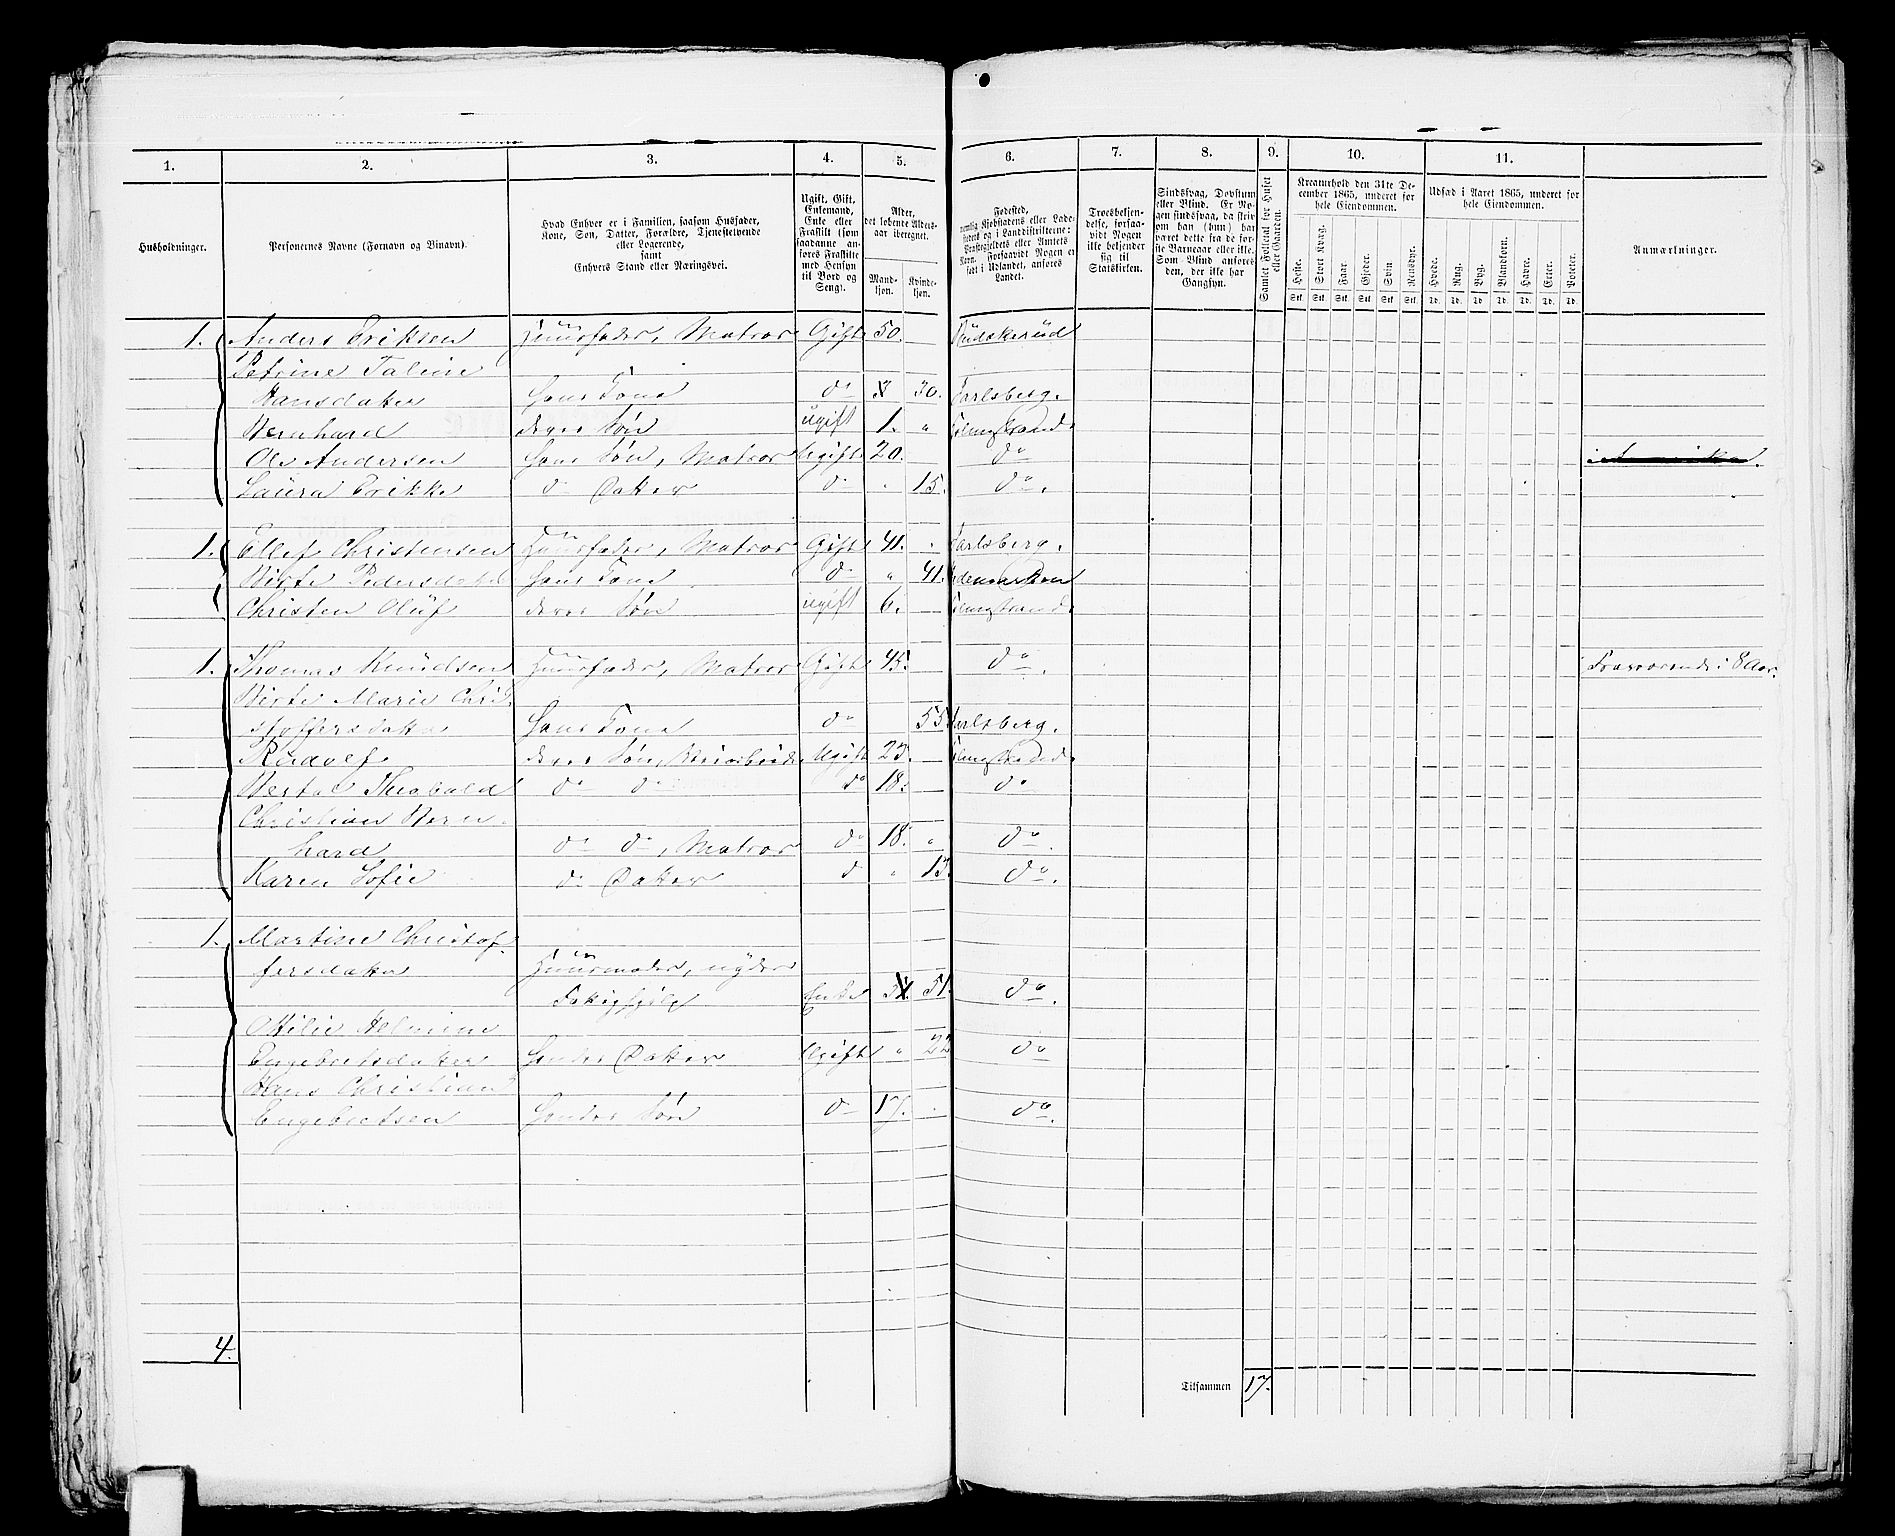 1. 2. 3. 4. 5. 6. 7. 8. 9. 10. 11.
Husholdninger.
Personernes Navne (Fornavn og Tilnavn).
Hvad Enhver er i Familien, saasom Husfader,
Kone, Søn, Datter, Forældre, Tjenestetyende
eller Logerende,
samt
Enhvers Stand eller Næringsvei.
Ugift, Gift,
Enkemand,
Enke eller
Fraskilt (som
saadanne an-
føres Fraskilte
med Hensyn
til Bord og
Seng).
Alder,
det løbende Alders-
aar iberegnet.
Mand-
kjøn.
Kvinde-
kjøn.
Fødested,
nemlig Kjøbstadens eller Lade-
stedets og i Landdistrikterne:
Præstegjeldets eller Amtets
Navn. Forsaavidt Nogen er
født i Udlandet, anføres
Landet.
Troesbekjen-
delse, forsaa-
vidt Nogen
ikke bekjender
sig til
Statskirken.
Sindssvag, Døvstum
eller Blind. Er No-
gen sindssvag, da skriv
om han (hun) har
været dette fra de før-
ste Barneaar eller ikke.
Som Blind anføres
den, der ikke har
Gangsyn.
Samlet Folketal for Huset
eller Gaarden.
Kreaturhold den 31te De-
cember 1865, underet for
hele Eiendommen.
Heste. Stort Kvæg. Faar. Gjeder. Svin Rensdyr.
Stk. Stk. Stk. Stk. Stk. Stk.
Udsæd i Aaret 1865, underet for
hele Eiendommen.
Hvede. Rug. Byg. Blandkorn. Havre. Erter. Poteter.
Td. Td. Td. Td. Td. Td. Td.
Anmærkninger.
1. Anders Eriksen Huusfader, Matros Gift 50.
Petrine Taline
Hansdatter Hans Kone do 30. Jarlsberg.
Bernhard deres Søn ugift 1. " Holmestrand.
Ole Andersen Hans Søn, Matros Ugift 20. do
Laura Erikke do Datter do " 15. do.
1. Ellef Christensen Huusfader, Matros Gift 41. Jarlsberg.
Birte Pedersdatter Hans Kone do " 41.
Christen Oluf deres Søn ugift 6. Holmestrand.
1. Thomas Knudsen Huusfader, Matros Gift 45. do. Fraværende i 8 Aar.
Birte Marie Chri-
stoffersdatter Hans Kone do 55 Jarlsberg.
Rudolf deres Søn, Ugift 23. Holmestrand.
Bertel Theobald do do do 18. do
Christian Bern-
hard do do, Matros do 18. " do.
Karen Sofie do Datter do " 13. do.
1. Martine Christof-
fersdatter Huusmoder, nyder
Fattighjelp Enke 51. do.
Otilie Helmine
Engebretsdatter Hendes Datter Ugift " 22 do
Hans Christian
Engebretsen Hendes Søn do 17. do.
4.
Tilsammen 17.